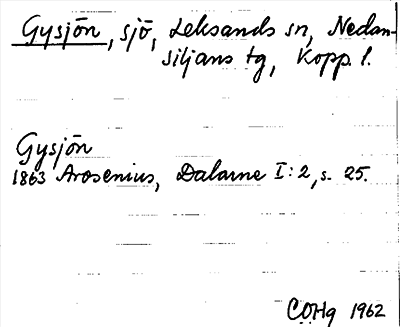 Gysjön, sjö, Leksands sn, Nedan-
siljans tg, Kopp. l.
Gysjön
1863 Arosenius, Dalarne I:2, s. 25.
COHg 1962